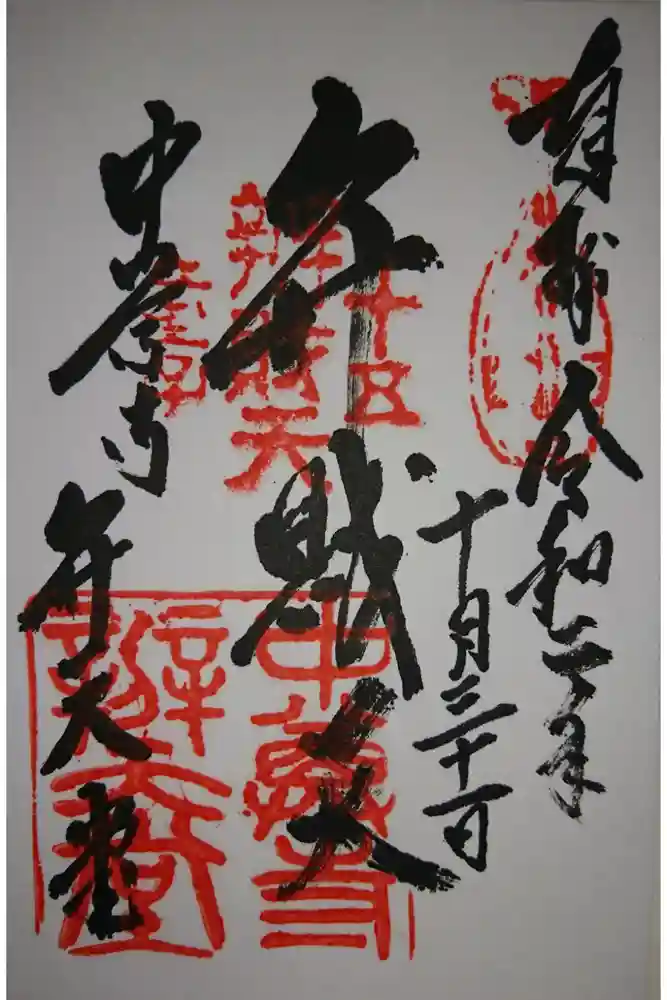 奉拝 令和二年
十月三十一日
弁財天
中尊寺 弁天堂
十五
辨財天
童子
中尊寺
辨天堂